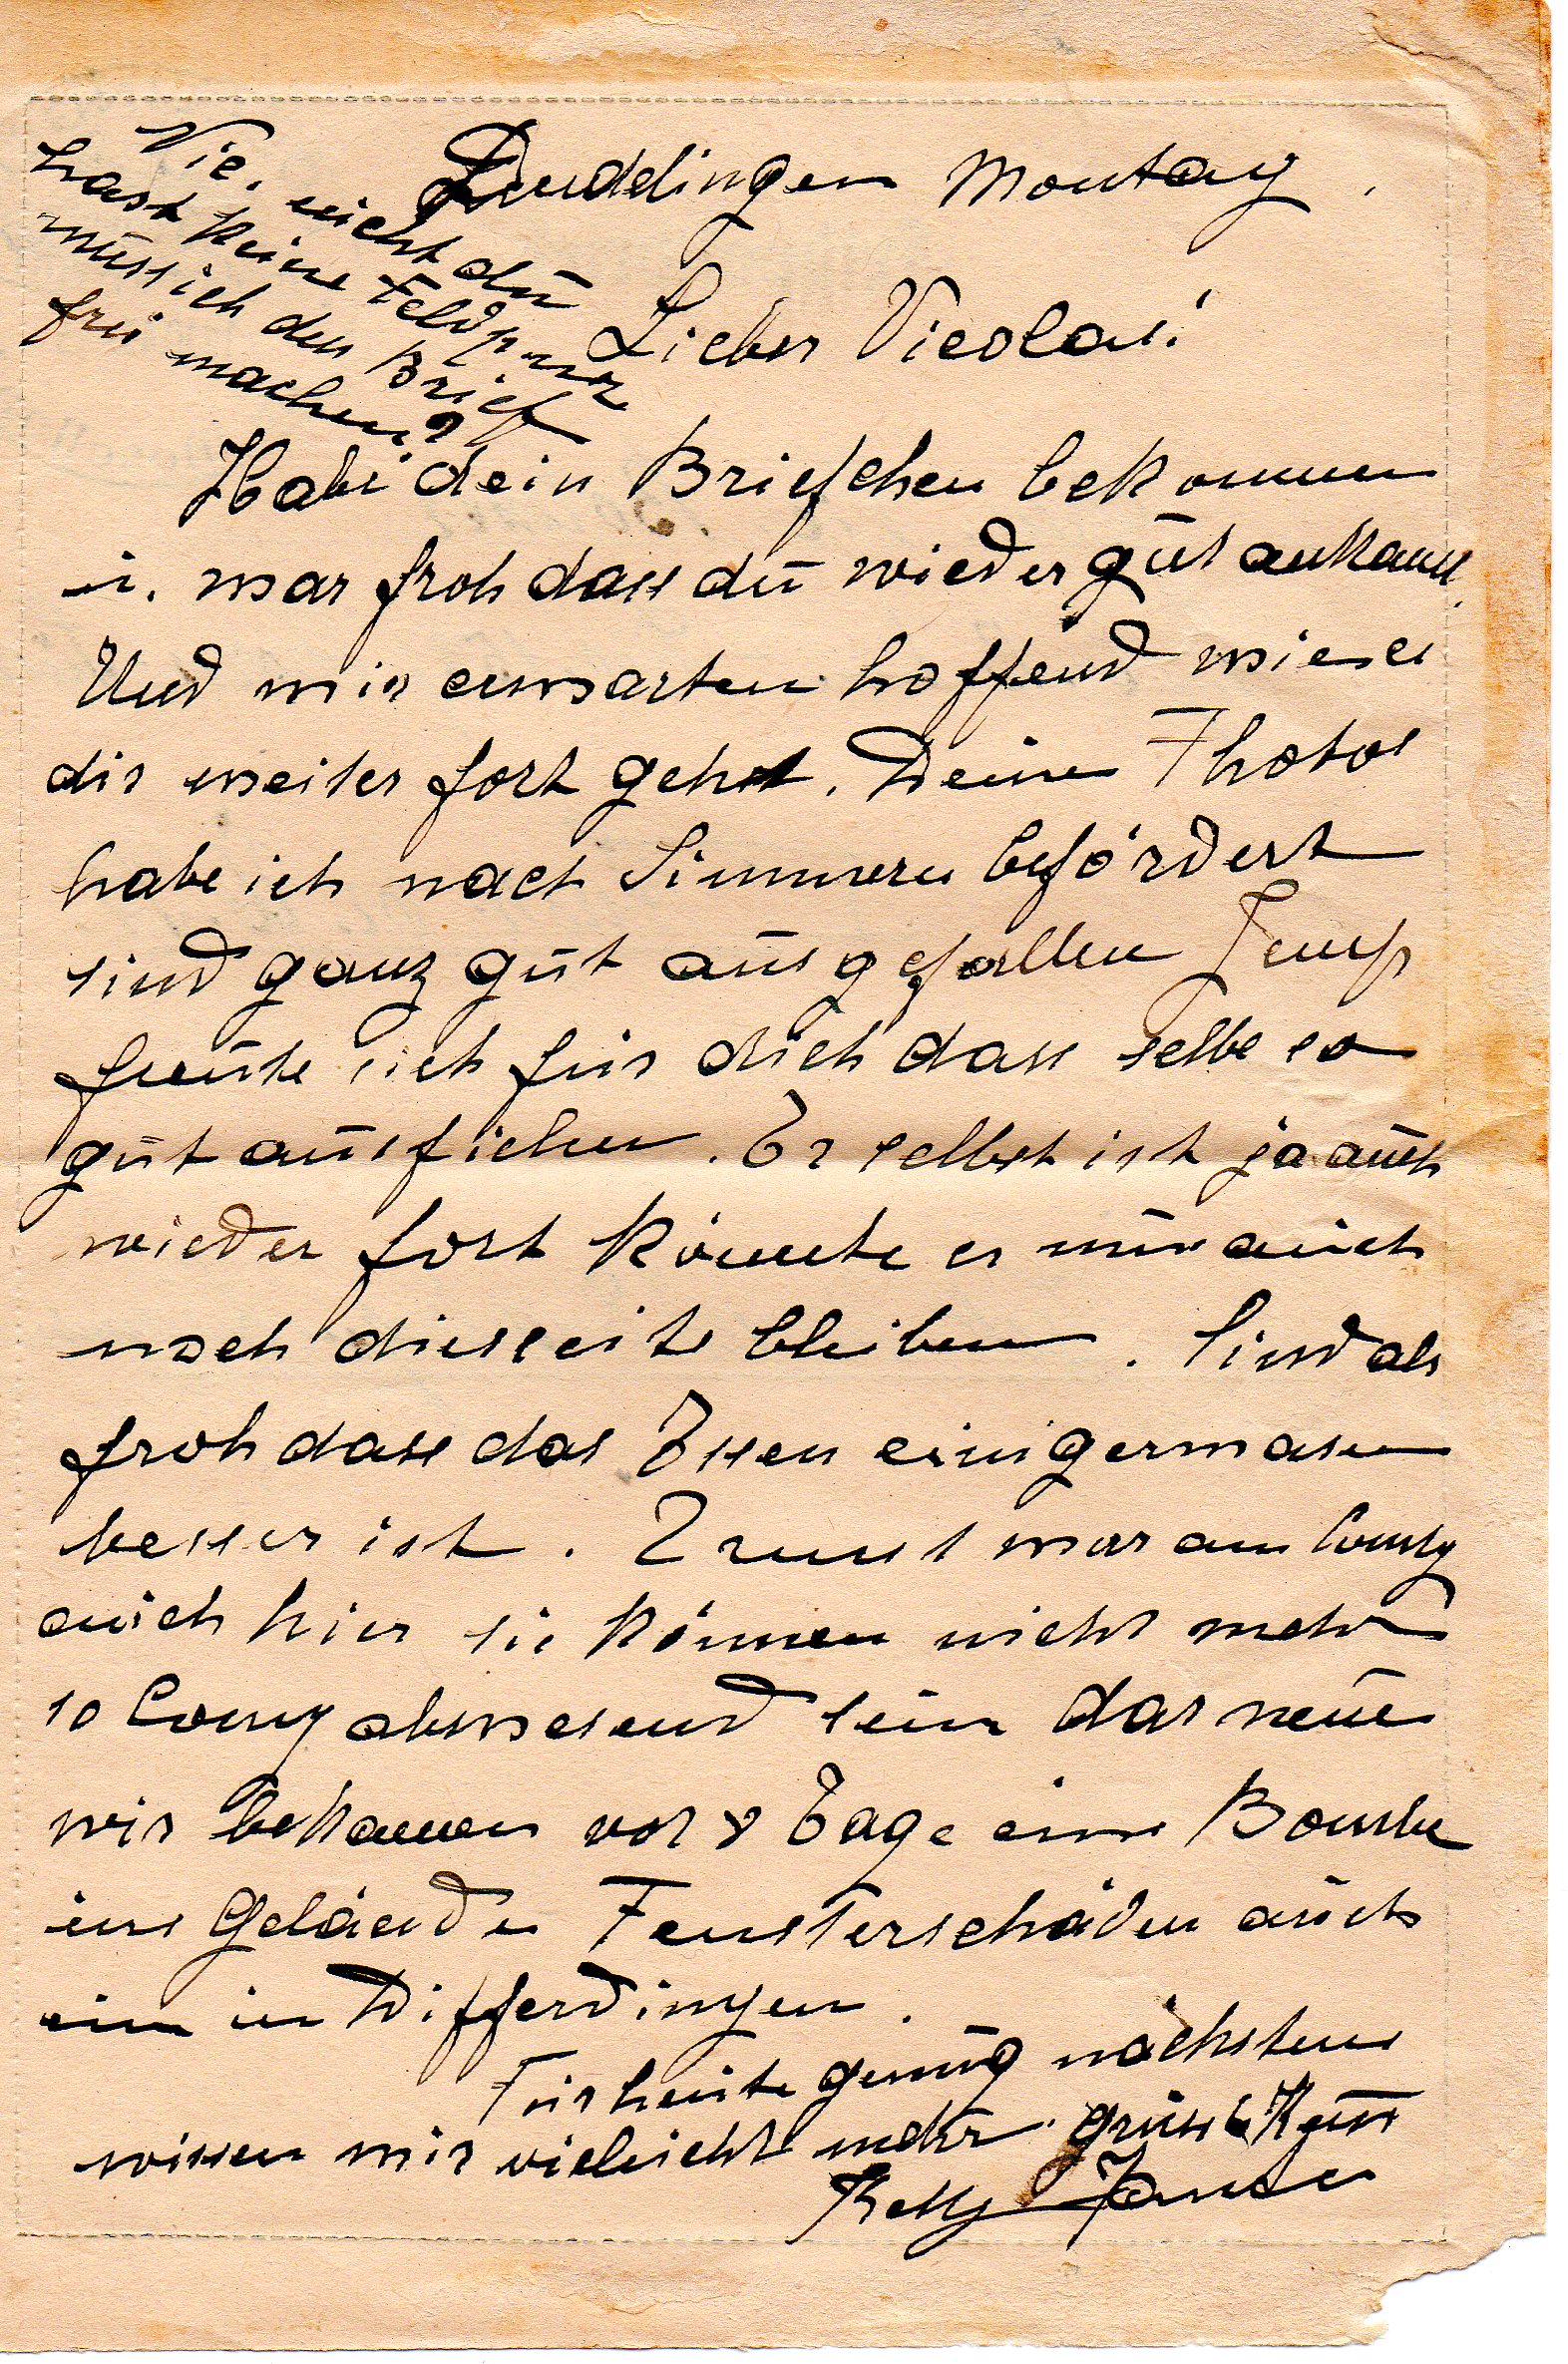 Vic. nicht du
hast keine Feldpnr
muss ich den Brief
frei machen?
Luddingen Montag.
Lieber Nicolas!
Habe dein Briefchen bekommen
u. war froh dass du wieder gut ankamst.
Und wir erwarten hoffend wie es
dir weiter fort geht. Deine Photos
habe ich nach Simmern befördert
sind ganz gut ausgefallen Jemp
freute sich für dich dass selbe so
gut ausfielen. Er selbst ist ja auch
wieder fort könnte er nur auch
noch diesseits bleiben. Sind als
froh dass das Essen einigermasen
besser ist. war am Sonntg
auch hier sie können nicht mehr
so lang abwesend sein das neue
wir bekamen vor 8 Tage eine Bombe
ins Gelände Fensterschäden auch
ein in Differdingen.
Für heute genug nächstens
wissen wir vieleicht mehr. Gruss &
Ketty